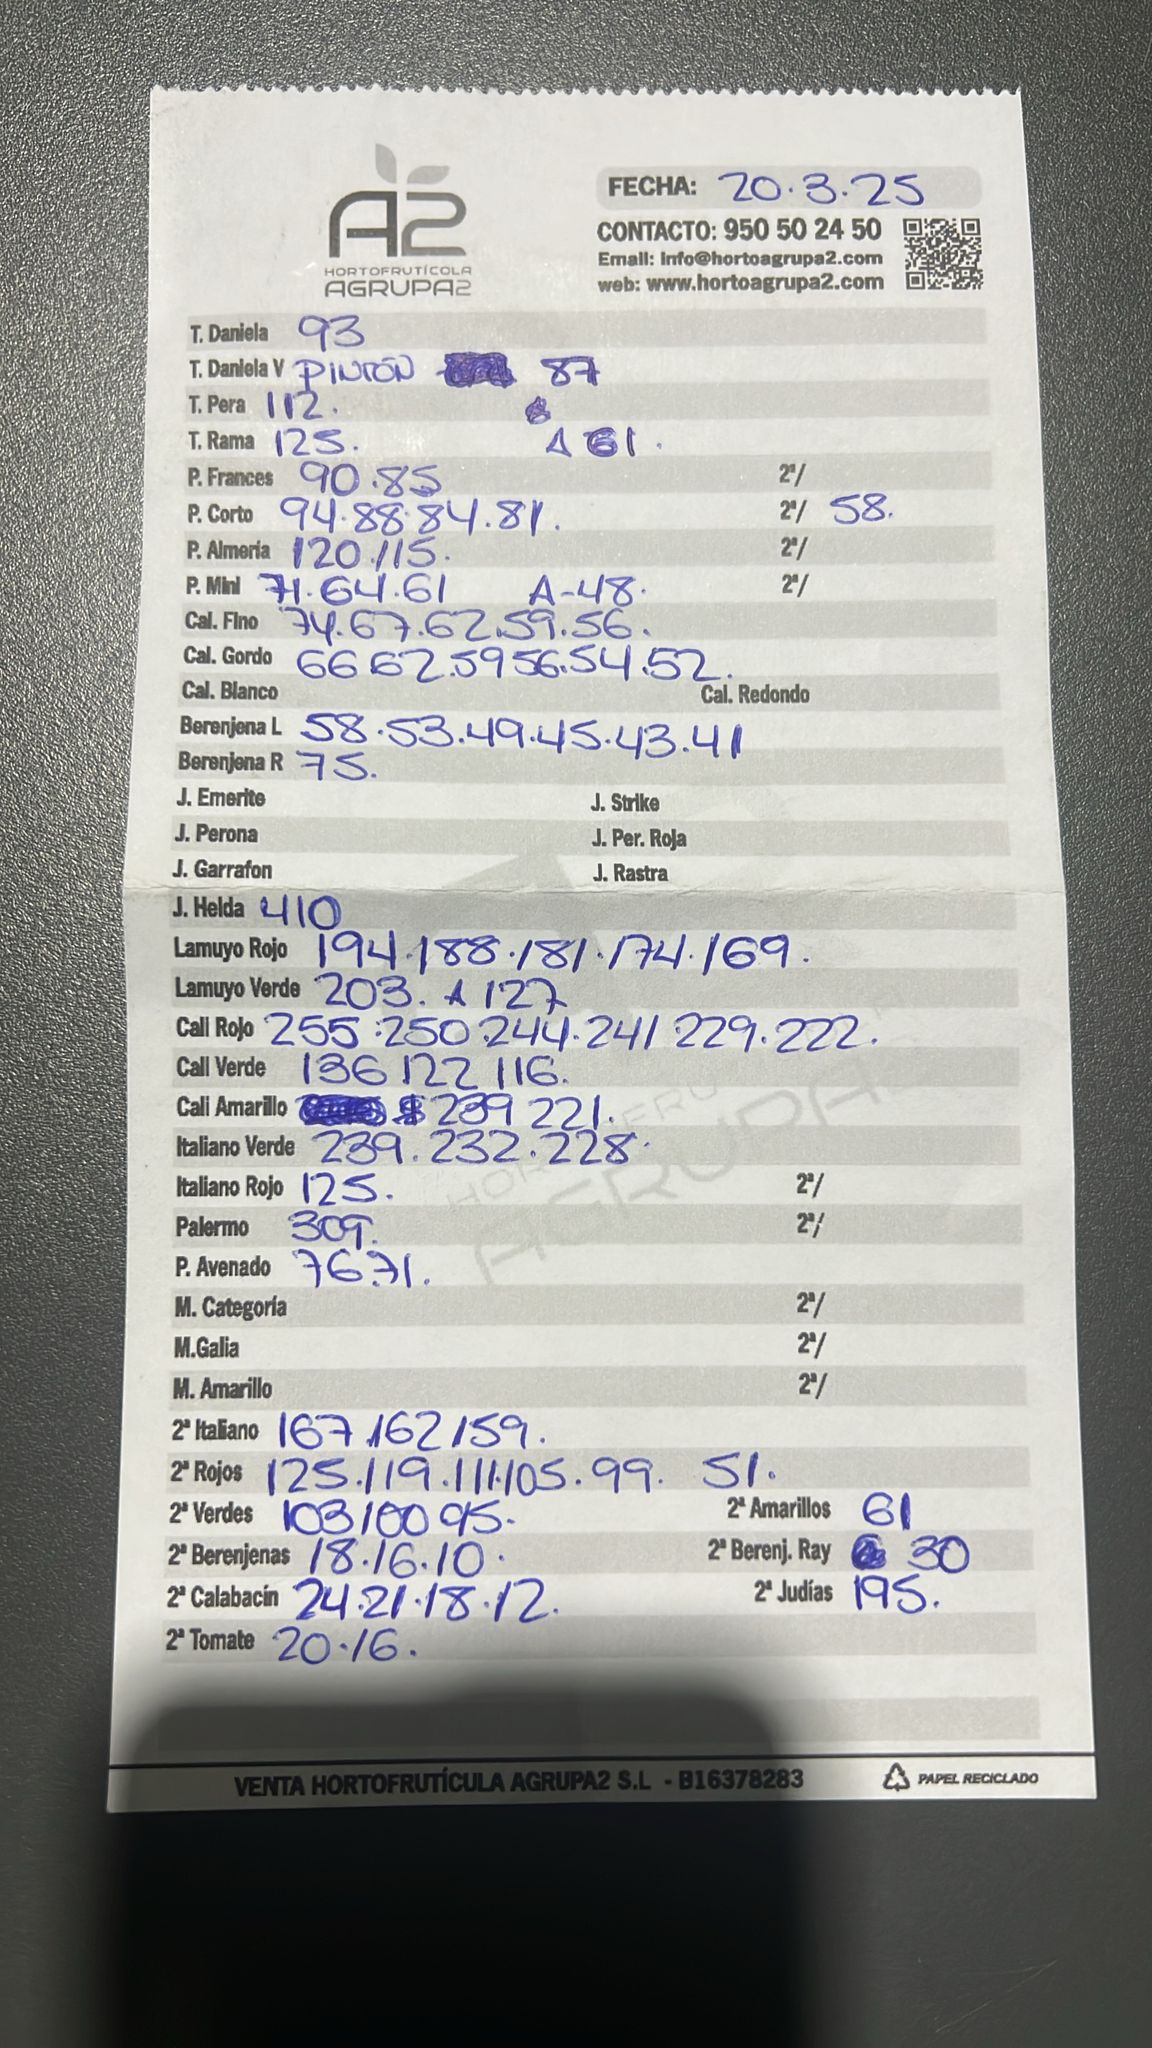 A2
HORTOFRUTÍCOLA
AGRUPA2
FECHA: 20.3.25
CONTACTO: 950 50 24 50
Email: info@hortoagrupa2.com
web: www.hortoagrupa2.com
T. Daniela 93
T. Daniela V PINTÓN 87
T. Pera 112.
T. Rama 125. A 61.
P. Frances 90.85 2ª/
P. Corto 94.88.84.81. 2ª/ 58.
P. Almería 120.115. 2ª/
P. Mini 71.64.61 A-48. 2ª/
Cal. Fino 74.67.62.59.56.
Cal. Gordo 66 62.59 56.54.52.
Cal. Blanco Cal. Redondo
Berenjena L 58.53.49.45.43.41
Berenjena R 75.
J. Emerite J. Strike
J. Perona J. Per. Roja
J. Garrafon J. Rastra
J. Helda 410
Lamuyo Rojo 194.188.181.174.169.
Lamuyo Verde 203. A 127
Cali Rojo 255.250.244.241 229.222.
Cali Verde 136 122 116.
Cali Amarillo 239 221.
Italiano Verde 239.232.228.
Italiano Rojo 125. 2ª/
Palermo 309. 2ª/
P. Avenado 76.71.
M. Categoría 2ª/
M.Galia 2ª/
M. Amarillo 2ª/
2ª Italiano 167.162.159.
2ª Rojos 125.119.111.105.99. 51.
2ª Verdes 103 100 95. 2ª Amarillos 61
2ª Berenjenas 18.16.10. 2ª Berenj. Ray 30
2ª Calabacín 24.21.18.12. 2ª Judías 195.
2ª Tomate 20.16.
HORTOFRUTÍCOLA
AGRUPA2
VENTA HORTOFRUTÍCULA AGRUPA2 S.L - B16378283 PAPEL RECICLADO